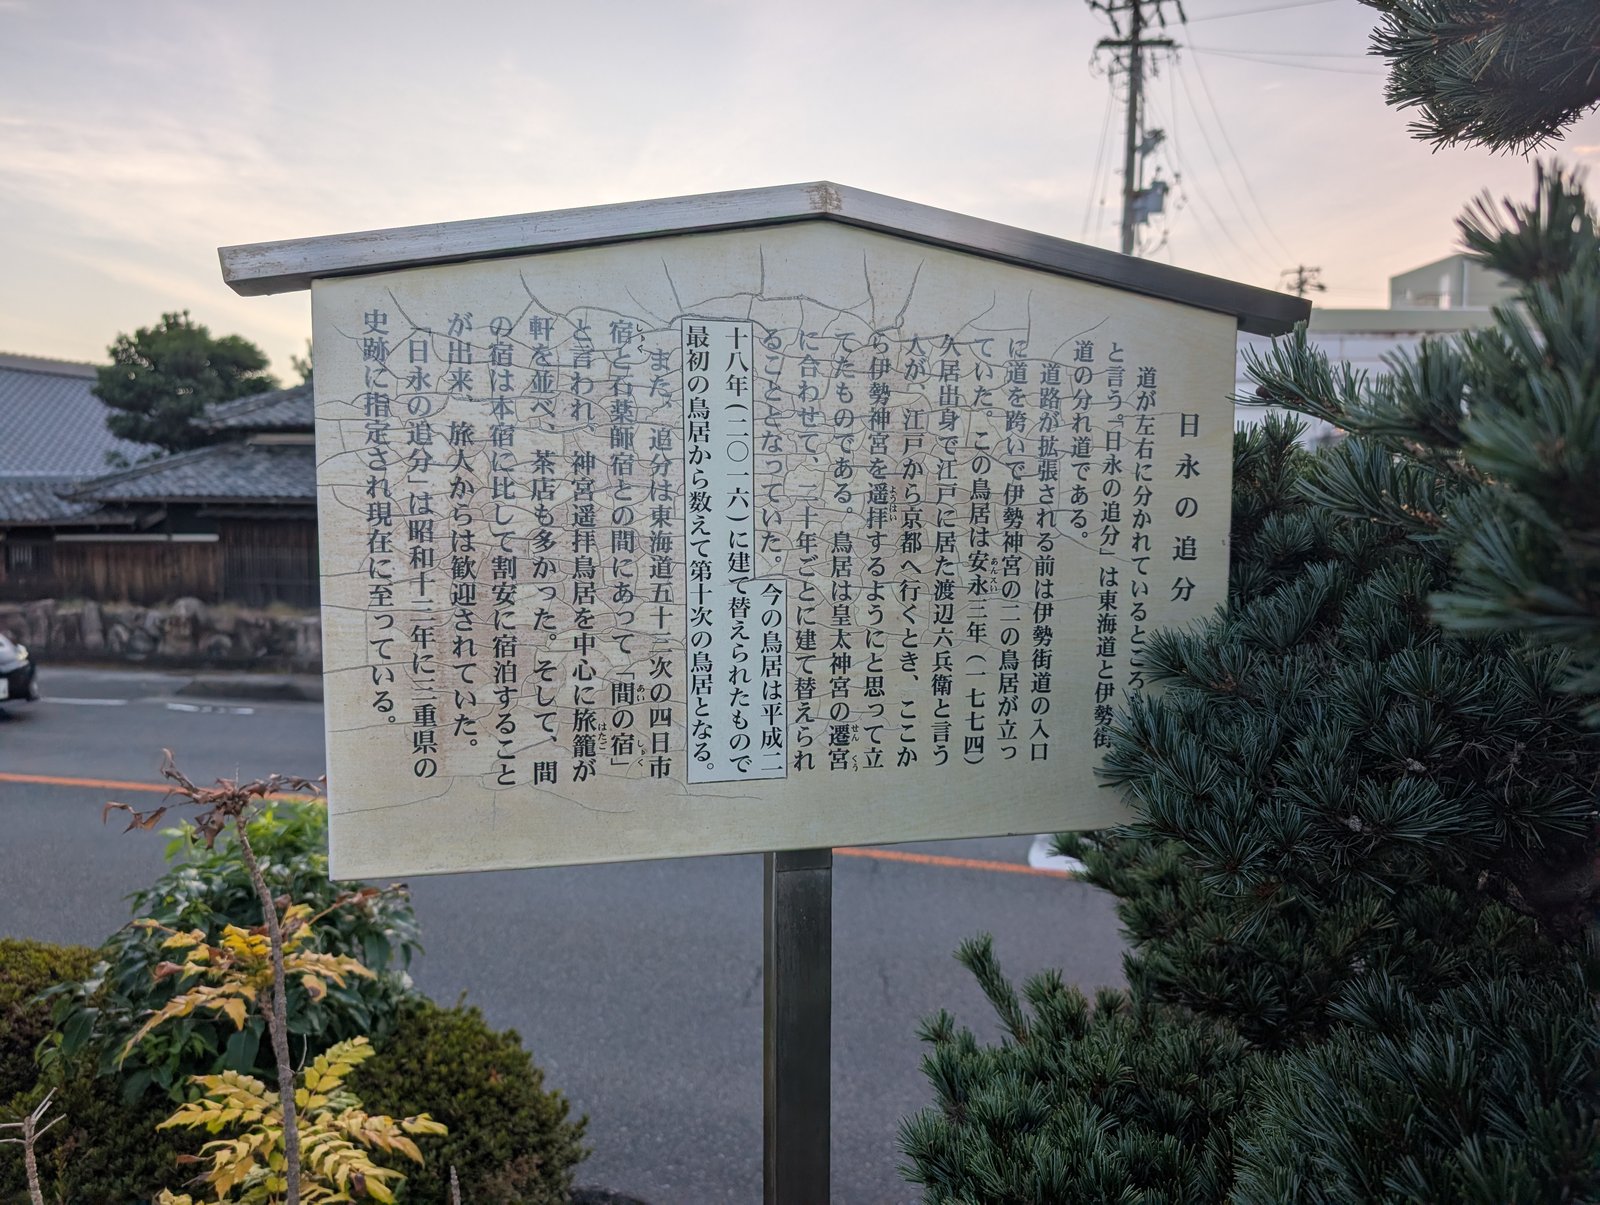 日永の追分
道が左右に分かれているところ
と言う。「日永の追分」は東海道と伊勢街
道の分れ道である。
道路が拡張される前は伊勢街道の入口
に道を跨いで伊勢神宮の二の鳥居が立っ
ていた。この鳥居は安永三年(一七七四)
久居出身で江戸に居た渡辺六兵衛と言う
人が、江戸から京都へ行くとき、ここか
ら伊勢神宮を遥拝するようにと思って立
てたものである。鳥居は皇太神宮の遷宮
に合わせて、二十年ごとに建て替えられ
ることとなっていた。今の鳥居は平成二
十八年(二〇一六)に建て替えられたもので
最初の鳥居から数えて第十次の鳥居となる。
また、追分は東海道五十三次の四日市
宿と石薬師宿との間にあって「間の宿」
と言われ、神宮遥拝鳥居を中心に旅籠が
軒を並べ、茶店も多かった。そして、間
の宿は本宿に比して割安に宿泊すること
が出来、旅人からは歓迎されていた。
「日永の追分」は昭和十二年に三重県の
史跡に指定され現在に至っている。